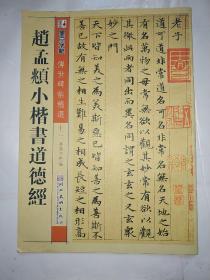 傳世碑帖精選
趙孟頫小楷書道德經
老子
道可道非常道名可名無名天地之始
有名萬物之母常無欲以觀其妙常有欲以觀
其徼此兩者同出而異名同謂之玄玄之又玄
妙之門
天下皆知美之爲美斯惡已皆知善之爲善斯不
善已故有無之相生難易之相成長短之相形高